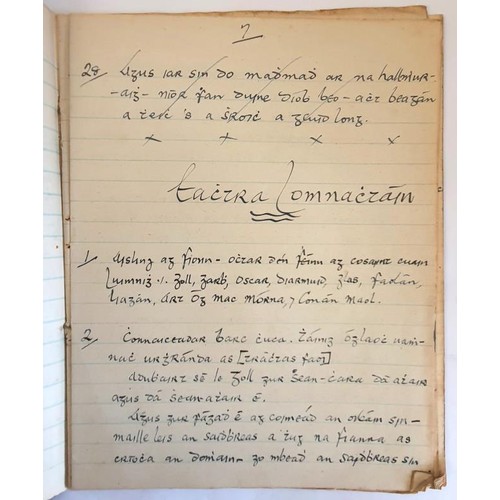 7
28/ Agus iar sin do maḋmaḋ ar na halbnur-
-aiġ - níor ḟan duine díob beo - aċt beagán
a ṫeiċ 's a ṡroiċ a gcuid long.
× + × ×
Eaċtra Lomnaċtáin
1/ Aisling ag Fionn - oċtar den Féinn ag cosaint cuain
Luimniġ .i. Goll, Garḃ, Oscar, Diarmuid, Glas, Faolán,
Art Óg Mac Morna, ⁊ Conán Maol.
2/ Connaiceadar barc ċuca. Táiniġ óglaoċ uaṁ-
naċ urġránda as [tráċtas faoi]
Aduḃairt sé le Goll gur ṡean-ċara dá aṫair
agus dá ṡean-aṫair é.
Agus gur fágaḋ é ag coiméad an oileáin sin-
maille leis an saiḋḃreas a ṫug na Fianna as
críoċa an doṁain - go mbeaḋ an saiḋḃreas sin